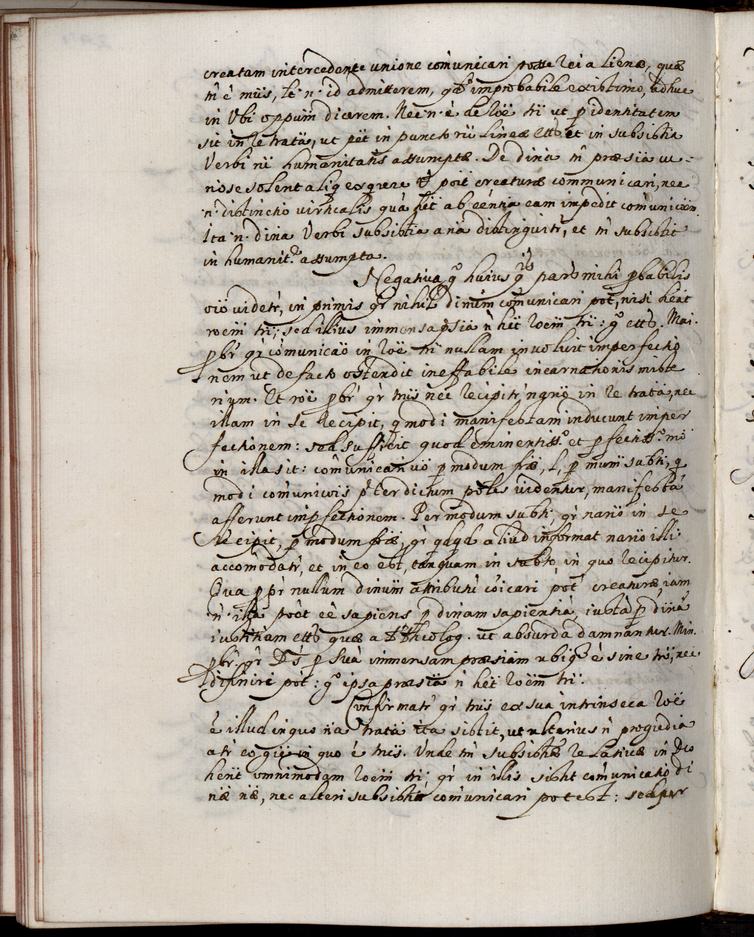 creatam intercedente unione comunicari posse rei alienæ, quæ
tñ ẽ mĩis, te .n. id admitterem, qđ improbabile existimo, adhuc
in Ubi oppum dicerem. Nec .n. ẽ de roẽ tri ut p identitatem
sit in re trata, ut pẽt in puncto rũ lineæ ettõ et in subsistia
Verbi rñ humanitatis assumptæ. De dina tñ præsia
nose solent aliq exquere posit creaturæ communicari, nec
.n. distinctio virtualis quã hẽt ab eentia eam impedit comunicãri
Ita .n. dina Verbi subsistia a nã distinguitr, et tñ subsistit
in humanit.e assumpta.
Negativa q̃ huius q.is pars mihi probabilis
videtr, in primis qr nihil dinum comunicari pot, nisi heat
roem tri; sed illius immensa præsia ñ hẽt roem tri: q̃ ettõ. Mai.
pbr qr comunicaõ in roẽ tri nullam involuit imperfectio
nem ut de facto ostendit ineffabile incarnationis miste
rium. Et roẽ pbr qr tmis nec recipitr, in re trata, nec
illam in se recipit, q modi manifestam inducunt imper
fectionem: sed sufficit quod eminentiæ et pfectiõ mõ
in illa sit: comunicari võ p modum fræ, l, p mum subti; q̃
modi comunicõis pterdictum potes videntur, manifestã
afferunt impfectionem. Per modum subti, qr in se
recipit, p modum fræ, qr qdqd aliud informat illi
accomodatr, et in eo est, tanquam in subto, in quo recipitur.
Qua p pr nullum dinum attributũ cõicari pot creaturæ, iam
.n. illa posset ẽe sapiens p dinam sapientiã, iusta p dinã
iustitiam ettõ quæ a Theolog. ut absurda damnantur. Min.
pbr qr Ds p suã immensam præsiam ubiq ẽ sine tri, nec
difiniri pot: q̃ ipsa præsia ñ hẽt roem tri.
Confirmatr qr tmis ex sua intrinseca roẽ
ẽ illud in quo nã trata ita sistit, ut ulterius ñ progredia
atr in quo ẽ tmis. Unde tñ subsistiæ relativæ in Deo
hent omnimodam roem tri qr in illis sistit comunicatio di
næ næ, nec alteri subsistiæ comunicari potest: sed per